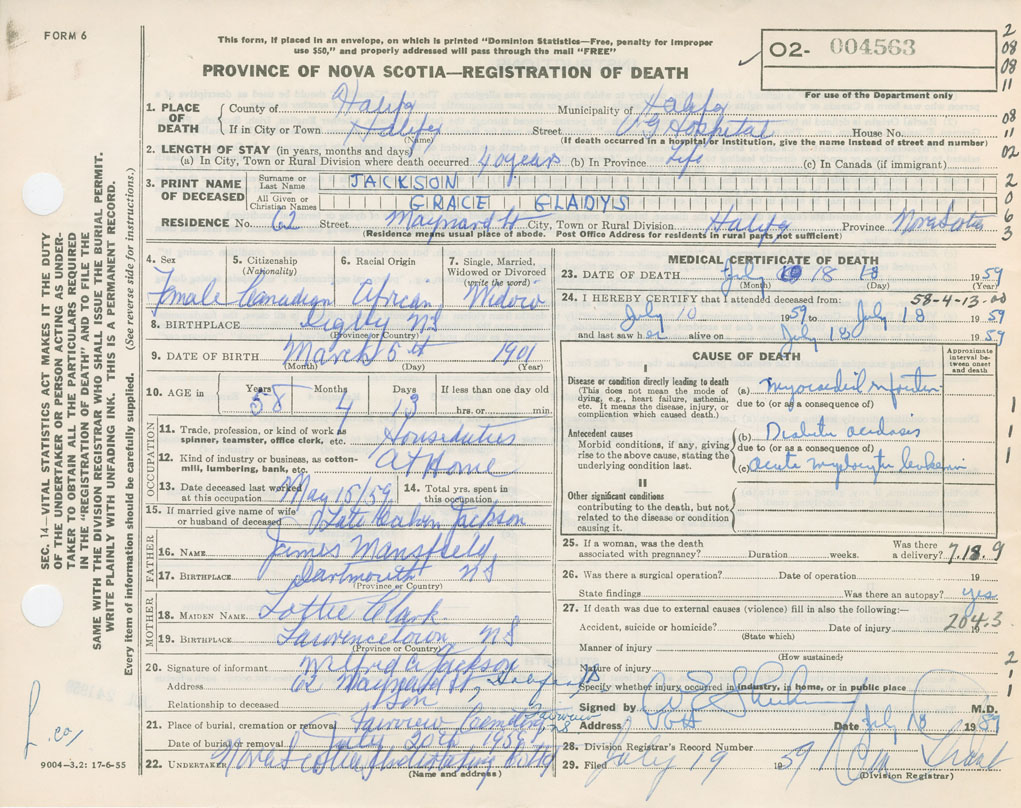 FORM 6
This form, if placed in an envelope, on which is printed "Dominion Statistics—Free, penalty for improper
use $50," and properly addressed will pass through the mail "FREE"
PROVINCE OF NOVA SCOTIA—REGISTRATION OF DEATH
02- 004563
For use of the Department only
2
08
08
11
08
11
02
2
0
6
3
1. PLACE OF DEATH
County of Halifax Municipality of Halifax
If in City or Town Halifax Street VG Hospital House No.
(Name) (If death occurred in a hospital or institution, give the name instead of street and number)
2. LENGTH OF STAY (in years, months and days)
(a) In City, Town or Rural Division where death occurred 40 years (b) In Province Life (c) In Canada (if immigrant)
3. PRINT NAME OF DECEASED
Surname or Last Name JACKSON
All Given or Christian Names GRACE GLADYS
RESIDENCE No. 62 Street Maynard St City, Town or Rural Division Halifax Province Nova Scotia
(Residence means usual place of abode. Post Office Address for residents in rural parts not sufficient)
4. Sex 5. Citizenship (Nationality) 6. Racial Origin 7. Single, Married, Widowed or Divorced (write the word)
Female Canadian African Widow
8. BIRTHPLACE Digby NS
(Province or Country)
9. DATE OF BIRTH March 5th 1901
(Month) (Day) (Year)
10. AGE in Years Months Days If less than one day old
58 4 13 hrs. or min.
OCCUPATION
11. Trade, profession, or kind of work as spinner, teamster, office clerk, etc. Houseduties
12. Kind of industry or business, as cotton-mill, lumbering, bank, etc. At Home
13. Date deceased last worked at this occupation May 15/59 14. Total yrs. spent in this occupation
15. If married give name of wife or husband of deceased Late Calvin Jackson
FATHER
16. NAME James Mansfield
17. BIRTHPLACE Dartmouth NS
(Province or Country)
MOTHER
18. MAIDEN NAME Lottie Clark
19. BIRTHPLACE Lawrencetown, NS
(Province or Country)
20. Signature of informant Wilfred A Jackson
Address 62 Maynard St Halifax NS
Relationship to deceased Son
21. Place of burial, cremation or removal Fairview Cemetery Fairview NS
Date of burial or removal July 20th 1959
22. UNDERTAKER Nova Scotia Undertaking
(Name and address)
MEDICAL CERTIFICATE OF DEATH
23. DATE OF DEATH July 18 1959
(Month) (Day) (Year)
58-4-13-00
24. I HEREBY CERTIFY that I attended deceased from:
July 10 1959 to July 18 1959
and last saw her alive on July 18 1959
CAUSE OF DEATH
Approximate interval between onset and death
I
Disease or condition directly leading to death
(This does not mean the mode of dying, e.g., heart failure, asthenia, etc. It means the disease, injury, or complication which caused death.)
(a) Myocardial infarction
due to (or as a consequence of)
Antecedent causes
Morbid conditions, if any, giving rise to the above cause, stating the underlying condition last.
(b) Diabetic acidosis
due to (or as a consequence of)
(c) acute myelocytic leukemia
II
Other significant conditions
contributing to the death, but not related to the disease or condition causing it.
1
1
1
25. If a woman, was the death associated with pregnancy? Duration weeks. Was there a delivery? 7.18.9
26. Was there a surgical operation? Date of operation 19
State findings Was there an autopsy? yes
27. If death was due to external causes (violence) fill in also the following:—
Accident, suicide or homicide? Date of injury 19
204.3
(State which)
Manner of injury
(How sustained)
Nature of injury
Specify whether injury occurred in industry, in home, or in public place
2
1
1
Signed by M.D.
Address VGH Date July 18 1959
28. Division Registrar's Record Number
29. Filed July 19 1959
(Division Registrar)
SEC. 14—VITAL STATISTICS ACT MAKES IT THE DUTY
OF THE UNDERTAKER OR PERSON ACTING AS UNDER-
TAKER TO OBTAIN ALL THE PARTICULARS REQUIRED
IN THE "REGISTRATION OF DEATH" AND TO FILE THE
SAME WITH THE DIVISION REGISTRAR WHO SHALL ISSUE THE BURIAL PERMIT.
WRITE PLAINLY WITH UNFADING INK. THIS IS A PERMANENT RECORD.
Every item of information should be carefully supplied. (See reverse side for instructions.)
9004—3.2: 17-6-55